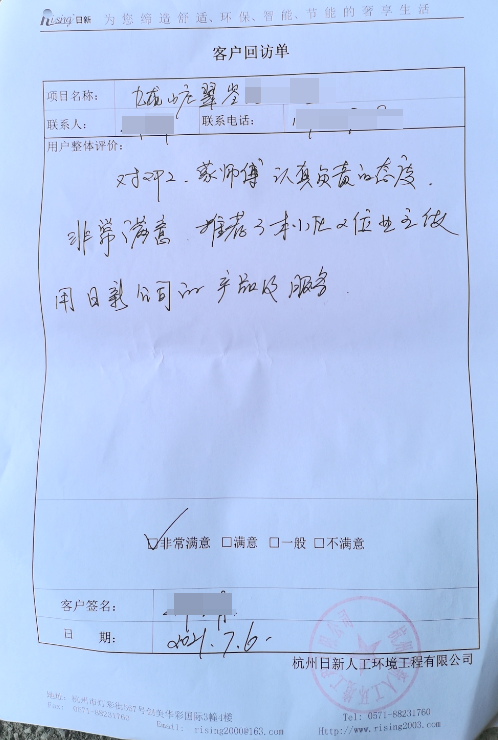 Rising 日新 为您缔造舒适、环保、智能、节能的奢享生活
客户回访单
项目名称: 九龙山庄翠岑
联系人: 联系电话:
用户整体评价:
对邓工、蔡师傅认真负责的态度
非常满意 推荐了本小区2位业主使
用日新公司的产品及服务.
非常满意 □满意 □一般 □不满意
客户签名:
日 期: 2021.7.6.
杭州日新人工环境工程有限公司
地址: 杭州市 号 华彩国际3幢4楼 Tel: 0571-88231760
Fax: 0571-88231760 Email: rising2000@163.com Http://www.rising2003.com